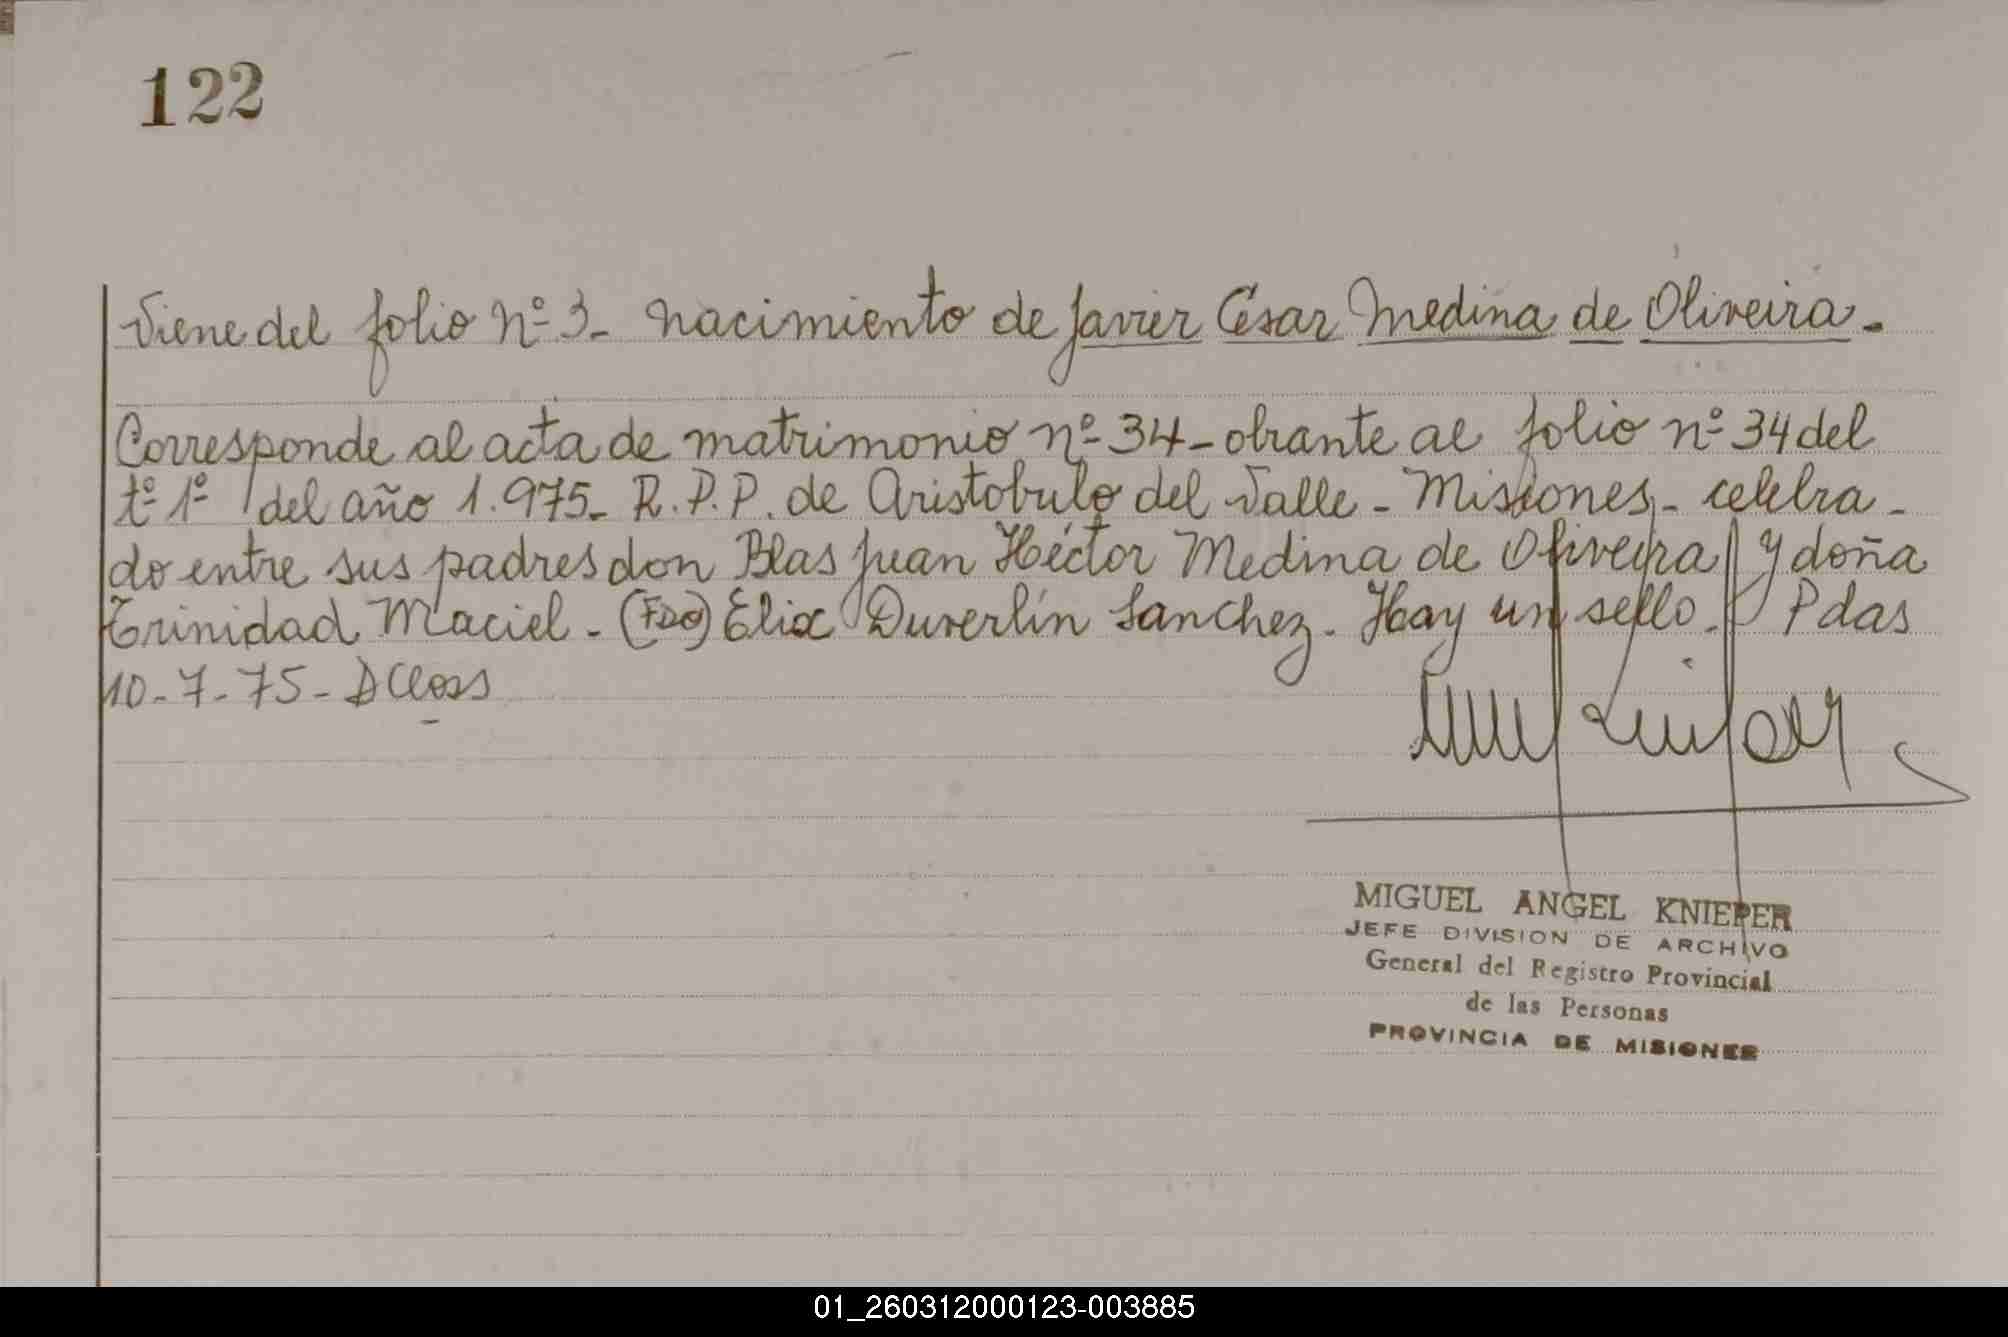 122
Viene del folio nº 3_ nacimiento de Javier César Medina de Oliveira.
Corresponde al acta de matrimonio nº 34_obrante al folio nº 34 del
tº 1º del año 1.975_ R.P.P. de Aristobulo del Valle - Misiones_ celebra-
do entre sus padres don Blas Juan Héctor Medina de Oliveira y doña
Trinidad Maciel. (FDO) Elix Duverlín Sanchez. Hay un sello. Pdas
10-7-75-
MIGUEL ANGEL KNIEPER
JEFE DIVISION DE ARCHIVO
General del Registro Provincial
de las Personas
PROVINCIA DE MISIONES
01_260312000123-003885